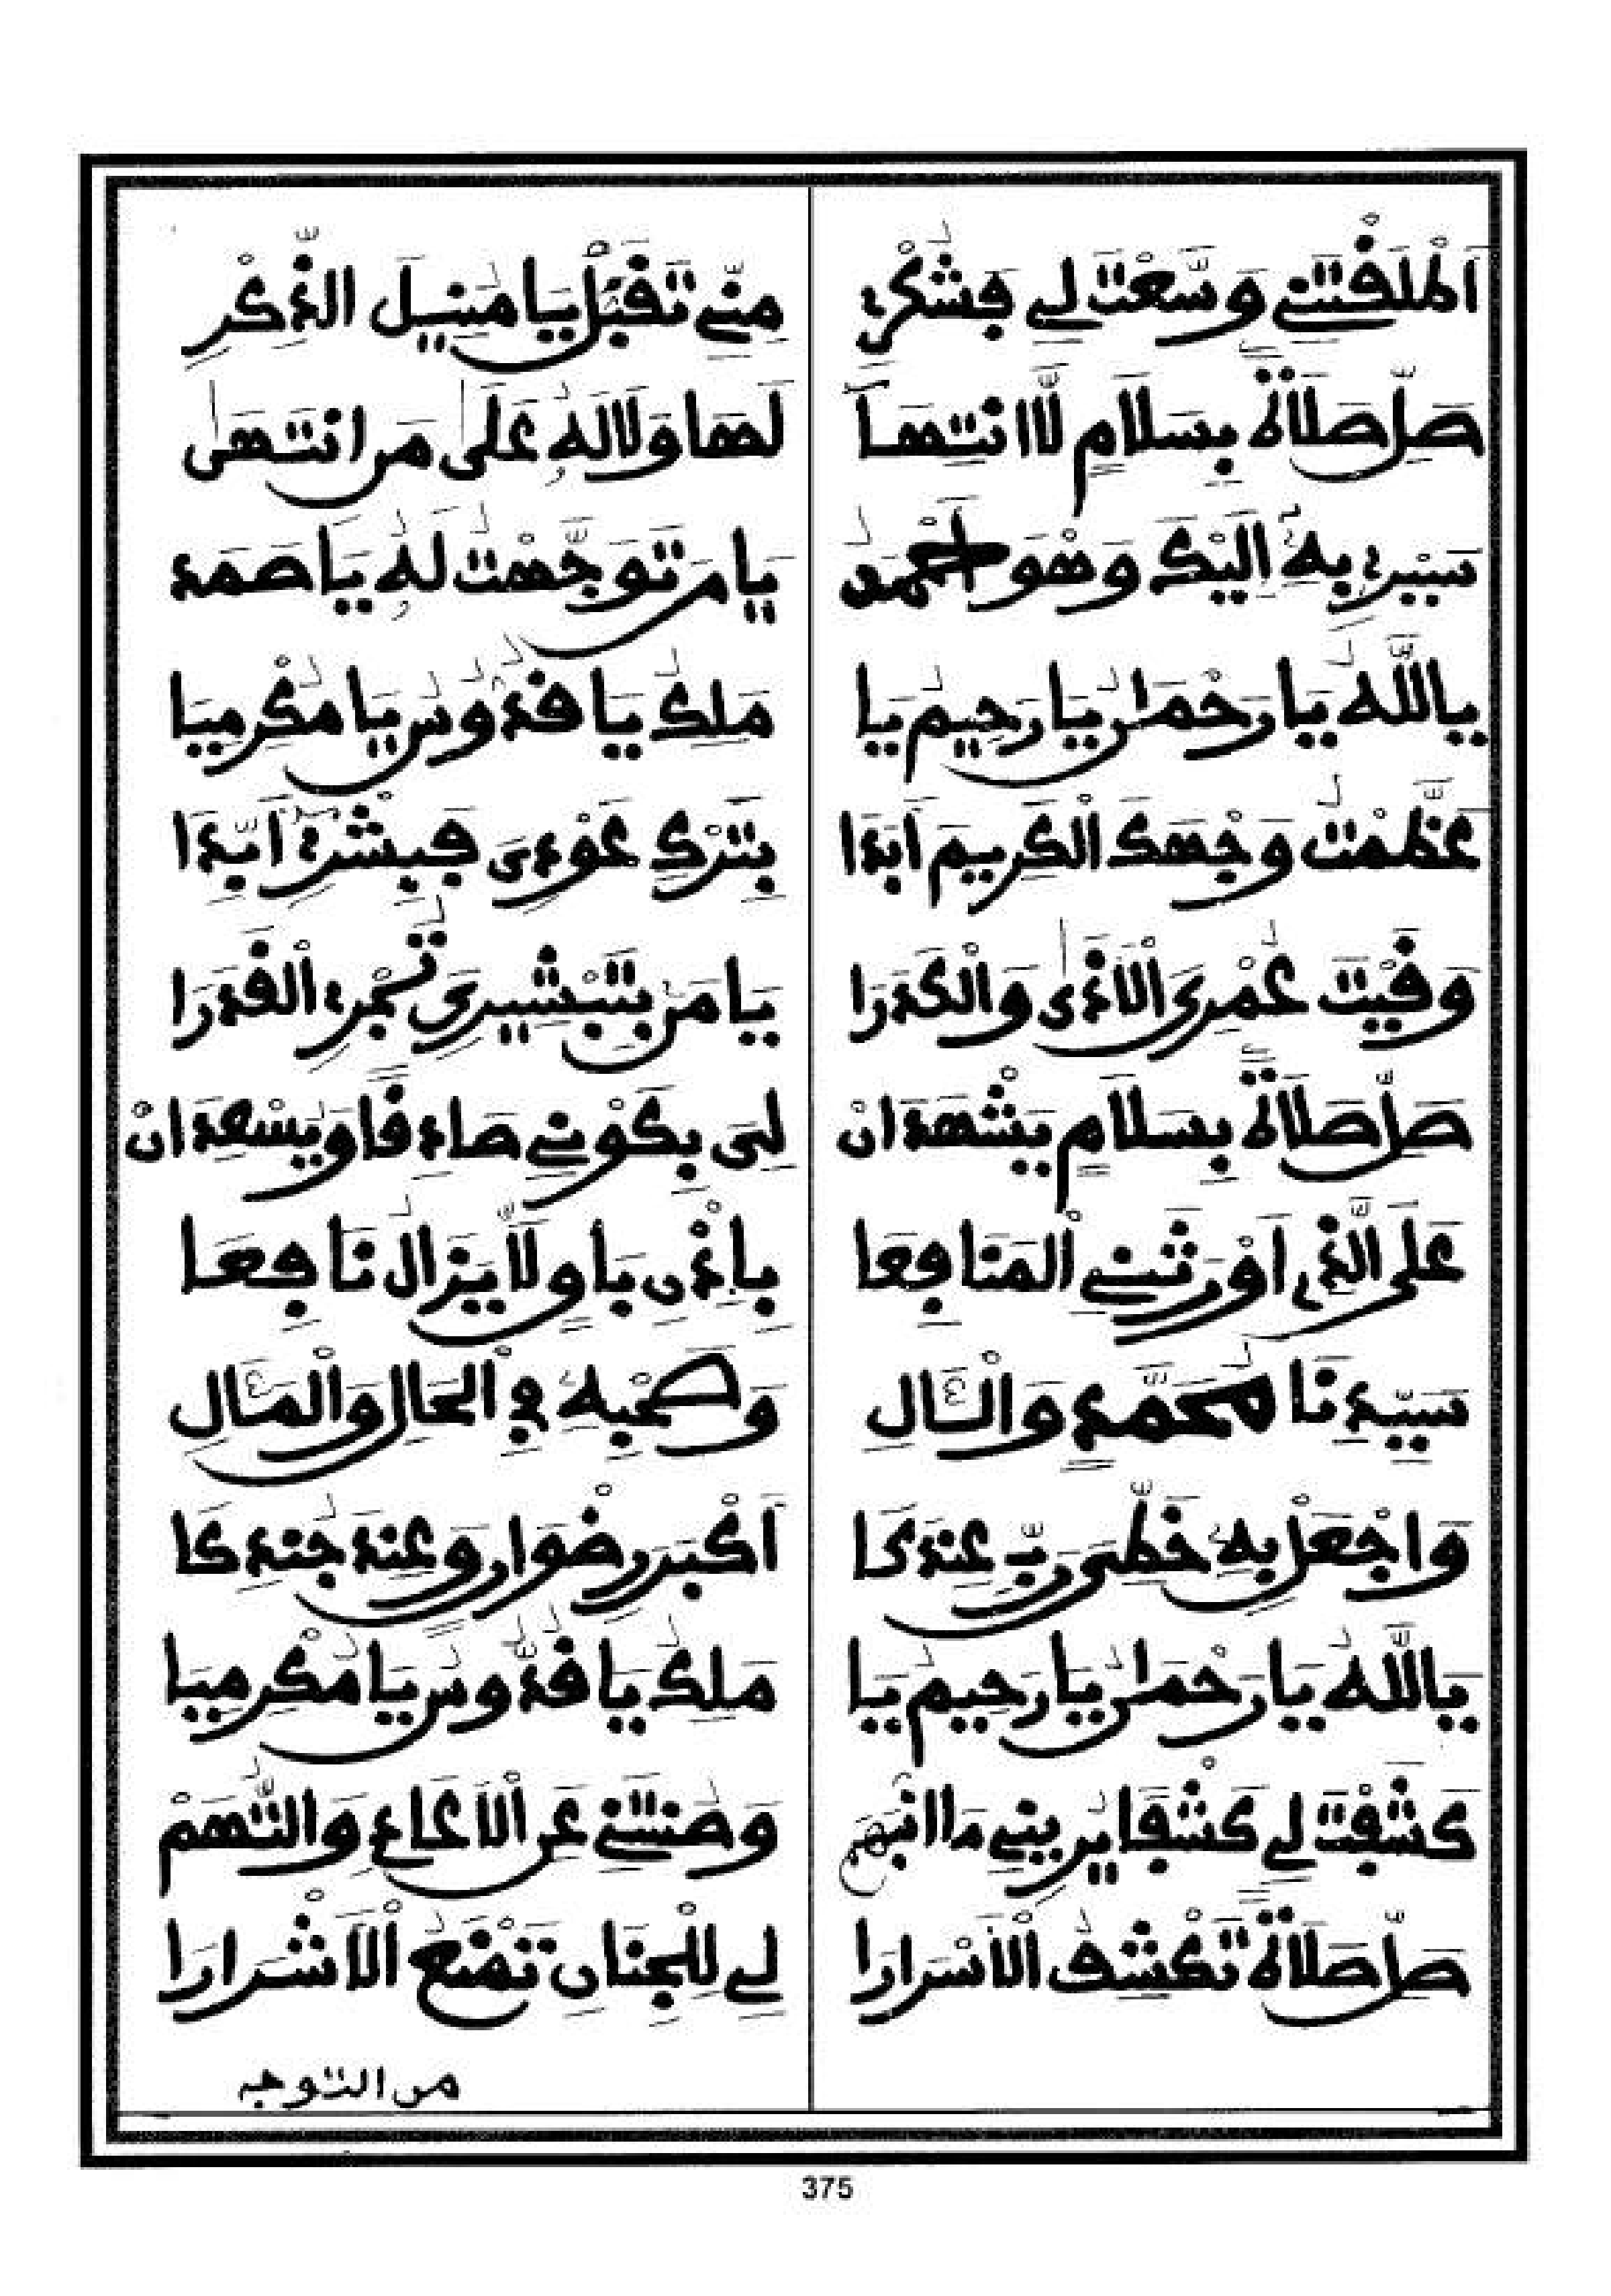 اَطْلَقْتَنِي وَسَّعْتَ لِي فَشُكْرِي مِنِّي تَقَبَّلْ يَا مُنِيلَ الذِّكْرِ
صَلِّ صَلَاةً بِسَلَامٍ لَّا انْتِهَا لَهَا وَلَا لَهُ عَلَى مَنِ انْتَهَى
سَيْرِي بِهِ اِلَيْكَ وَهْوَ أَحْمَدُ يَا مَن تَوَجَّهْتُ لَهُ يَا صَمَدُ
يَاللَّهُ يَا رَحْمَنُ يَا رَحِيمُ يَا مَلِكُ يَا قُدُّوسُ يَا مُكْرِمِيَا
عَظَّمْتُ وَجْهَكَ الْكَرِيمَ اَبَدَا بِتَرْكِ عَوْدِي فَبِشْرِي اَيِّدَا
وَقَيْتَ عُمْرِيَ الْأَذَى وَالْكَدَرَا يَا مَنْ بِتَبْشِيرِي تُجْرِي الْقَدَرَا
صَلِّ صَلَاةً بِسَلَامٍ يَشْهَدَانْ لِى بِكَوْنِي صَادِقًا وَيُسْعِدَانْ
عَلَى الَّذِي اَوْرَثَنِي الْمَنَافِعَا بِاِذْنِ بَاقٍ وَلَا يَزَالُ نَافِعَا
سَيِّدِنَا مُحَمَّدٍ وَالْآلِ وَصَحْبِهِ فِي الْحَالِ وَالْمَآلِ
وَاجْعَلْ بِهِ خَطِّىَ رَبِّ عِنْدَكَا اَكْبَرَ رِضْوَانٍ وَعِنْدَ جُنْدِكَا
يَاللَّهُ يَا رَحْمَنُ يَا رَحِيمُ يَا مَلِكُ يَا قُدُّوسُ يَا مُكْرِمِيَا
كَشَفْتَ لِي كَشْفًا يُرِينِي مَا انْبَهَمْ وَصُنْتَنِي عَنِ الْاِدِّعَاءِ وَالتُّهَمْ
صَلِّ صَلَاةً تَكْشِفُ الْأَسْرَارَا لِي لِلْجِنَانِ تَمْنَعُ الْأَشْرَارَا
من التوجه
375